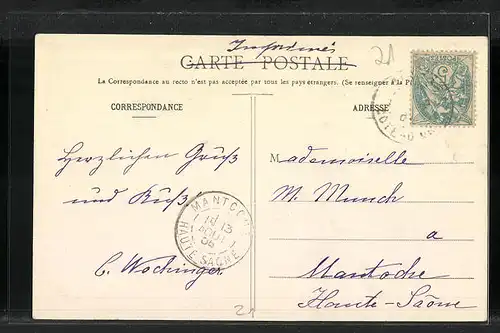 Imprimés
21
CARTE POSTALE
La Correspondance au recto n'est pas acceptée par tous les pays étrangers. (Se renseigner à la
CORRESPONDANCE
ADRESSE
Herzlichen Gruß
und Kuß!
C. Wochinger
Mademoiselle
M. Munch
a
Mantoche
Haute-Saône
MANTOCHE
13
AOUT
HAUTE-SAONE
21